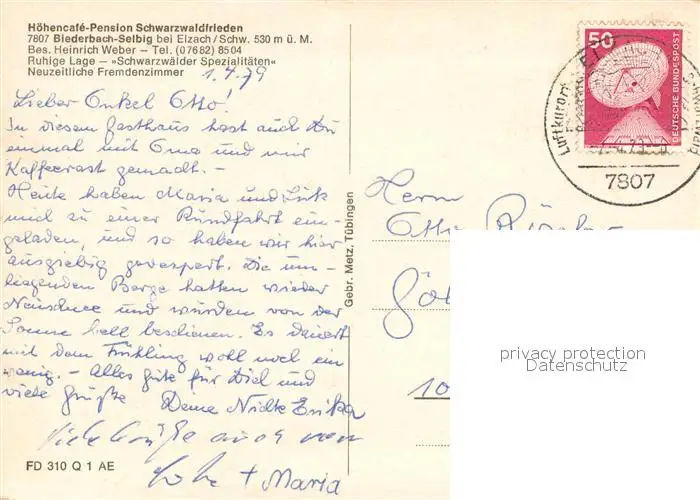 Höhencafé-Pension Schwarzwaldfrieden
7807 Biederbach-Selbig bei Elzach/Schw. 530 m ü. M.
Bes. Heinrich Weber – Tel. (07682) 8504
Ruhige Lage – »Schwarzwälder Spezialitäten«
Neuzeitliche Fremdenzimmer
1.4.79
Lieber Onkel Otto!
In diesem Gasthaus hast auch Du
einmal mit Oma und mir
Kaffeerast gemacht. –
Heute haben Maria und
mich zu einer Rundfahrt ein-
geladen, und so haben wir hier
ausgiebig gevespert. Die um-
liegenden Berge hatten wieder
Neuschnee und wurden von der
Sonne hell beschienen. Es dauert
mit dem Frühling wohl noch ein
wenig. – Alles gute für Dich und
viele Grüße Deine Nichte Erika
Viele Grüße auch von
+ Maria
FD 310 Q 1 AE
Gebr. Metz, Tübingen
50
DEUTSCHE BUNDESPOST
Luftkurort
7807
Herrn
Otto
10
privacy protection
Datenschutz